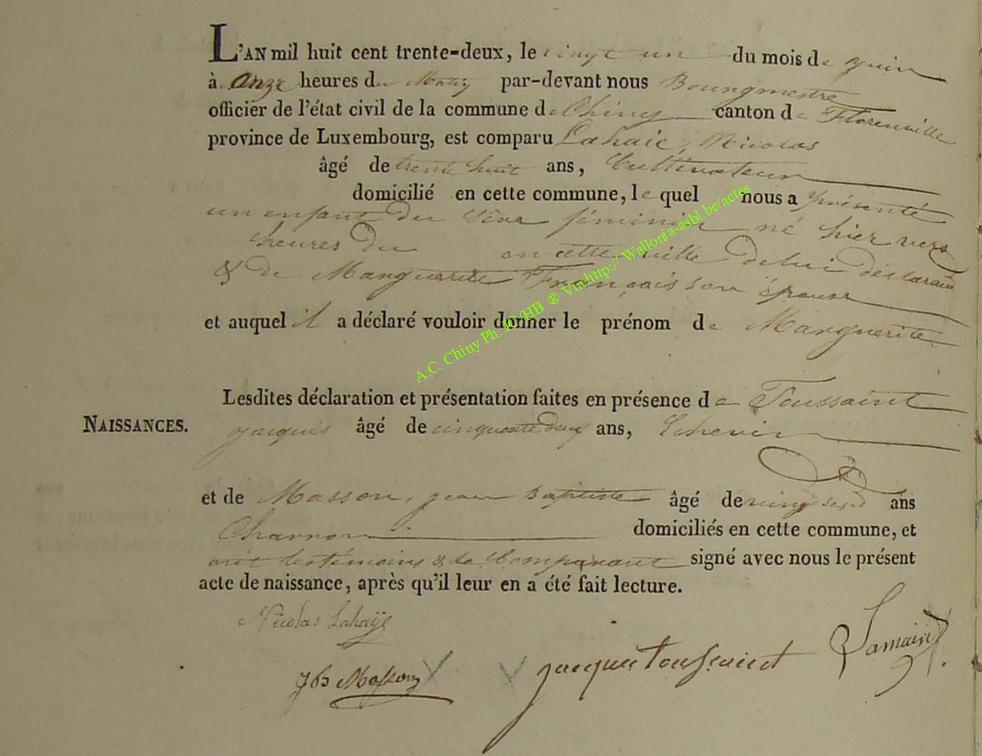 L'AN mil huit cent trente-deux, le vingt un du mois de juin
à onze heures du Matin par-devant nous Bourgmestre
officier de l'état civil de la commune de Chiny canton de Florenville
province de Luxembourg, est comparu Lahaie, Nicolas
âgé de trente huit ans, Cultivateur
domicilié en cette commune, lequel nous a présenté
un enfant du sèxe féminin né hier vers
heures du en cette ville de lui déclarant
& de Marguerite François son épouse
et auquel il a déclaré vouloir donner le prénom de Marguerite
Lesdites déclaration et présentation faites en présence de Toussaint
NAISSANCES.
jacques âgé de cinquante deux ans, Echevin
et de Masson, jean Baptiste âgé de vingt sept ans
Charron domiciliés en cette commune, et
ont les témoins & le Comparant signé avec nous le présent
acte de naissance, après qu'il leur en a été fait lecture.
Nicolas Lahaÿe
JB Masson
jacque toussaint
A.C. Chiny Ph. JG/HB ® Via http:// Wallonia-asbl.be/actes